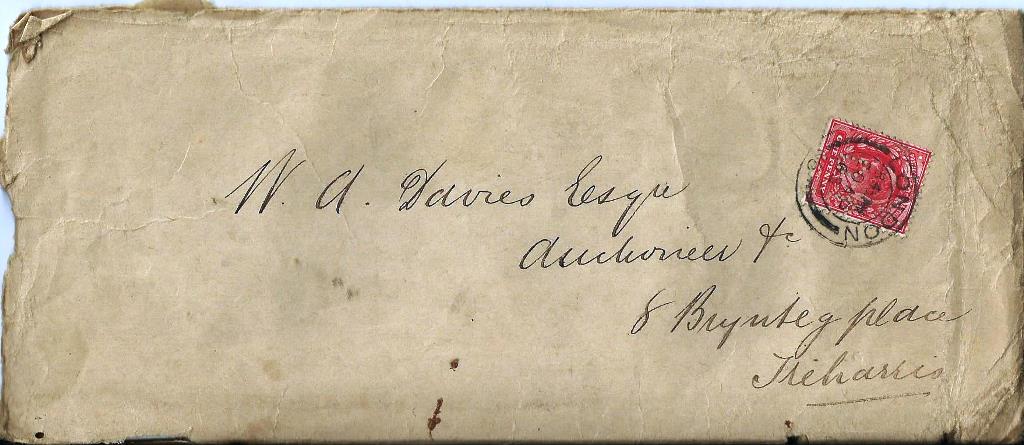 W. A. Davies Esqr
Auctioneer &c
8 Brynteg place
Treharris
LONDON